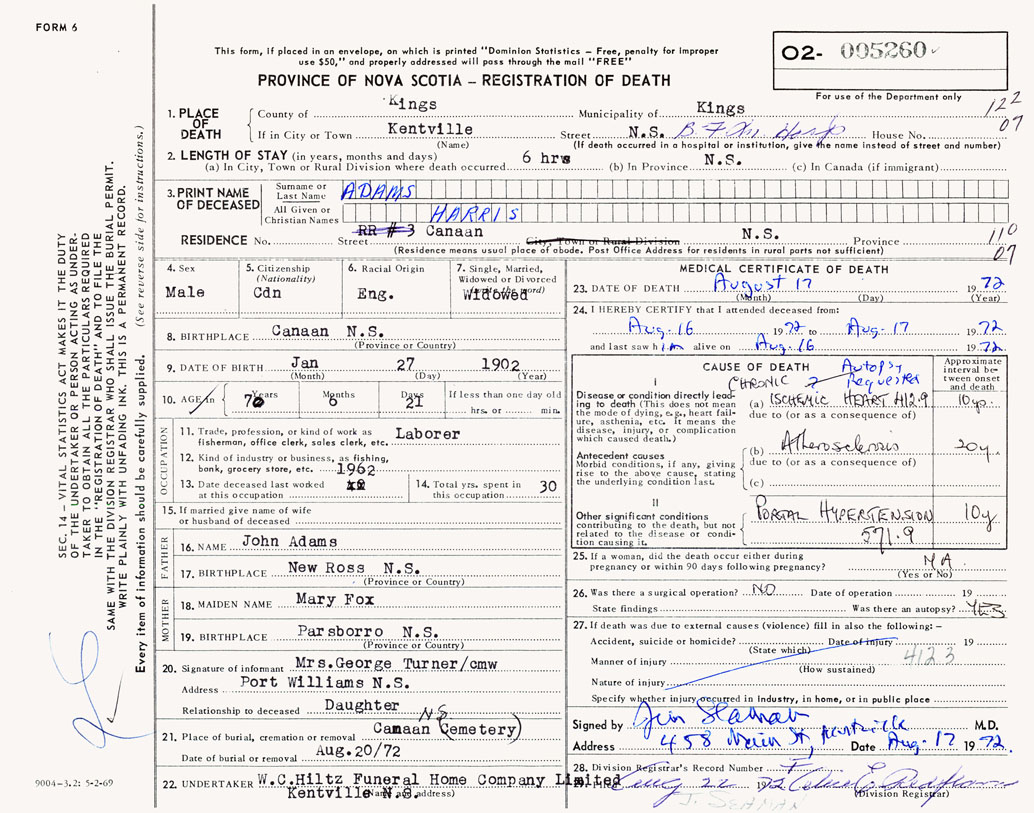 FORM 6
This form, if placed in an envelope, on which is printed "Dominion Statistics – Free, penalty for improper
use $50," and properly addressed will pass through the mail "FREE"
PROVINCE OF NOVA SCOTIA – REGISTRATION OF DEATH
O2- 005260
For use of the Department only
122
07
1. PLACE OF DEATH
County of Kings Municipality of Kings
If in City or Town Kentville Street N.S. B F M Hosp House No.
(Name) (If death occurred in a hospital or institution, give the name instead of street and number)
2. LENGTH OF STAY (in years, months and days)
(a) In City, Town or Rural Division where death occurred 6 hrs (b) In Province N.S. (c) In Canada (if immigrant)
3. PRINT NAME OF DECEASED
Surname or Last Name ADAMS
All Given or Christian Names HARRIS
RESIDENCE No. Street RR # 3 Canaan City, Town or Rural Division N.S. Province
(Residence means usual place of abode. Post Office Address for residents in rural parts not sufficient)
110
07
4. Sex
Male
5. Citizenship
(Nationality)
Cdn
6. Racial Origin
Eng.
7. Single, Married,
Widowed or Divorced
(write the word)
Widowed
8. BIRTHPLACE Canaan N.S.
(Province or Country)
9. DATE OF BIRTH Jan 27 1902
(Month) (Day) (Year)
10. AGE in Years 70 Months 6 Days 21 If less than one day old
hrs. or min.
OCCUPATION
11. Trade, profession, or kind of work as
fisherman, office clerk, sales clerk, etc. Laborer
12. Kind of industry or business, as fishing,
bank, grocery store, etc. 1962
13. Date deceased last worked
at this occupation
14. Total yrs. spent in
this occupation 30
15. If married give name of wife
or husband of deceased
FATHER
16. NAME John Adams
17. BIRTHPLACE New Ross N.S.
(Province or Country)
MOTHER
18. MAIDEN NAME Mary Fox
19. BIRTHPLACE Parsborro N.S.
(Province or Country)
20. Signature of informant Mrs.George Turner/cmw
Address Port Williams N.S.
Relationship to deceased Daughter
NS
21. Place of burial, cremation or removal Canaan (Cemetery)
Date of burial or removal Aug.20/72
22. UNDERTAKER W.C.Hiltz Funeral Home Company Limited
Kentville N.S.
(Name and address)
MEDICAL CERTIFICATE OF DEATH
23. DATE OF DEATH August 17 1972
(Month) (Day) (Year)
24. I HEREBY CERTIFY that I attended deceased from:
Aug. 16 1972 to Aug. 17 1972
and last saw him alive on Aug. 16 1972
CAUSE OF DEATH
Autopsy
Requested
Approximate
interval be-
tween onset
and death
I
CHRONIC ?
Disease or condition directly lead-
ing to death (This does not mean
the mode of dying, e.g., heart fail-
ure, asthenia, etc. It means the
disease, injury, or complication
which caused death.)
(a) ISCHEMIC HEART 412.9 10yo.
due to (or as a consequence of)
Antecedent causes
Morbid conditions, if any, giving
rise to the above cause, stating
the underlying condition last.
(b) Atherosclerosis 20y.
due to (or as a consequence of)
(c)
II
Other significant conditions
contributing to the death, but not
related to the disease or condi-
tion causing it.
PORTAL HYPERTENSION 10y
571.9
25. If a woman, did the death occur either during
pregnancy or within 90 days following pregnancy? NA
(Yes or No)
26. Was there a surgical operation? NO Date of operation 19
State findings Was there an autopsy? YES
27. If death was due to external causes (violence) fill in also the following: –
Accident, suicide or homicide? Date of injury 19
(State which)
Manner of injury 412 3
(How sustained)
Nature of injury
Specify whether injury occurred in Industry, in home, or in public place
Signed by Jim Seaman M.D.
Address 458 Main St, Kentville Date Aug. 17 1972.
28. Division Registrar's Record Number
29. Filed Aug 22 1972
(Division Registrar)
J. SEAMAN
SEC. 14 – VITAL STATISTICS ACT MAKES IT THE DUTY
OF THE UNDERTAKER OR PERSON ACTING AS UNDER-
TAKER TO OBTAIN ALL THE PARTICULARS REQUIRED
IN THE "REGISTRATION OF DEATH" AND TO FILE THE
SAME WITH THE DIVISION REGISTRAR WHO SHALL ISSUE THE BURIAL PERMIT.
WRITE PLAINLY WITH UNFADING INK. THIS IS A PERMANENT RECORD.
Every item of information should be carefully supplied. (See reverse side for instructions.)
9004-3.2: 5-2-69